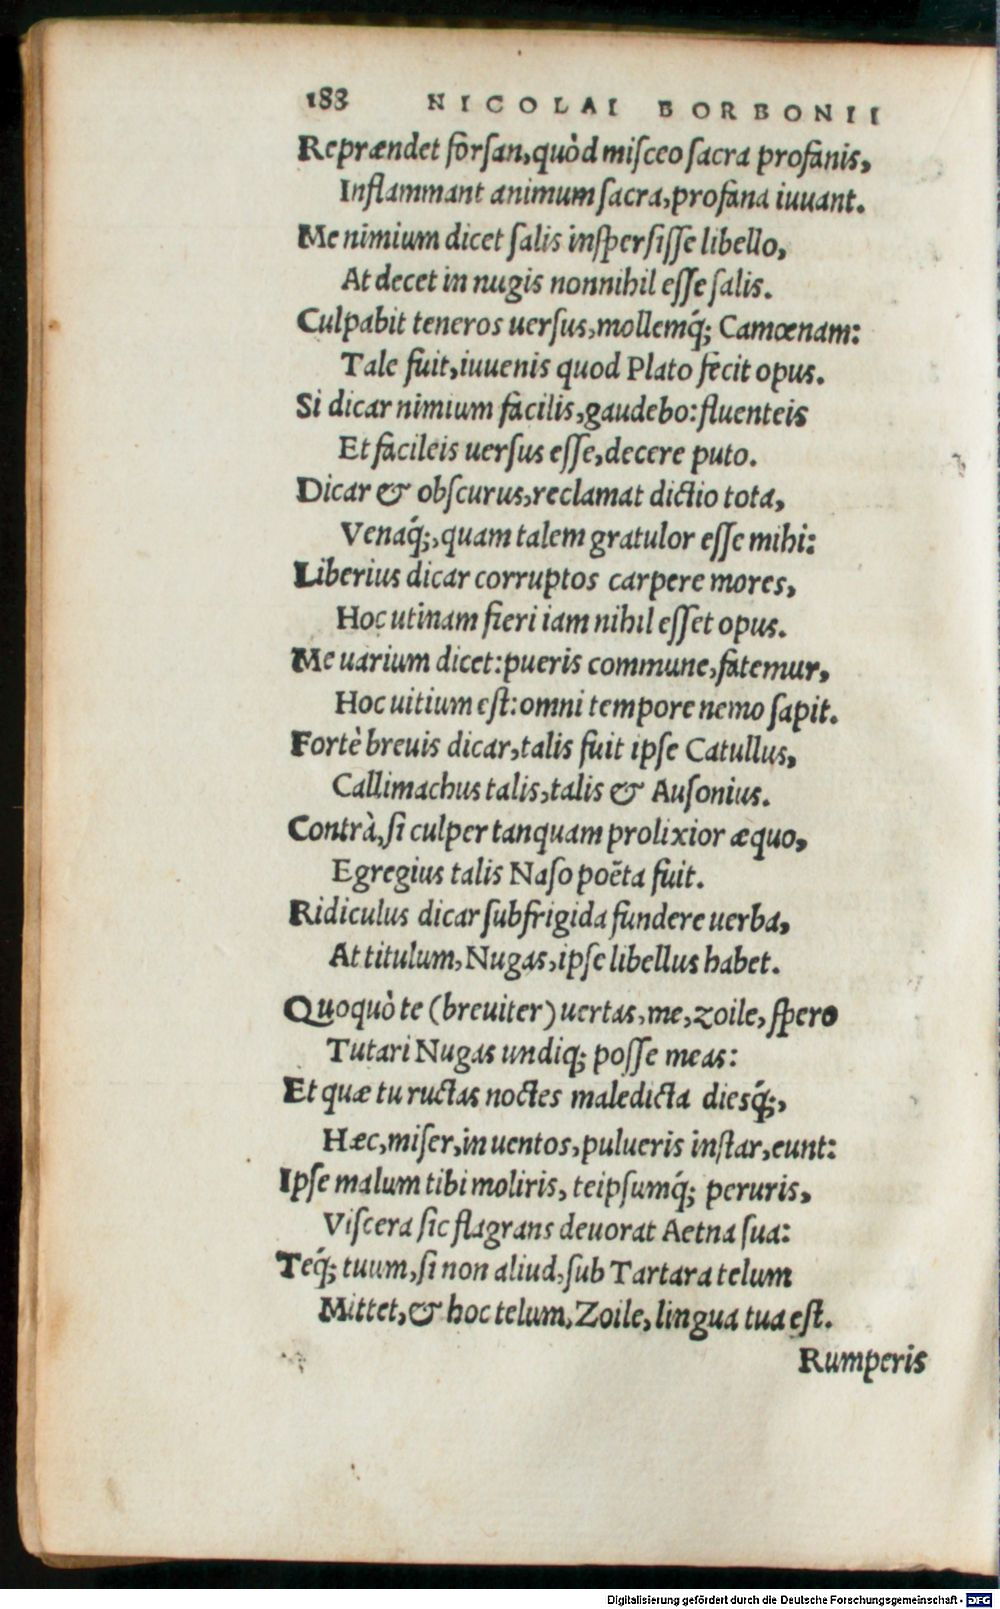 188 NICOLAI BORBONII
Reprændet forſan, quòd miſceo ſacra profanis,
Inflammant animum ſacra, profana iuuant.
Me nimium dicet ſalis inſperſiſſe libello,
At decet in nugis nonnihil eſſe ſalis.
Culpabit teneros uerſus, mollemq́; Camœnam:
Tale fuit, iuuenis quod Plato fecit opus.
Si dicar nimium facilis, gaudebo: fluenteis
Et facileis uerſus eſſe, decere puto.
Dicar & obſcurus, reclamat dictio tota,
Venaq́;, quam talem gratulor eſſe mihi:
Liberius dicar corruptos carpere mores,
Hoc utinam fieri iam nihil eſſet opus.
Me uarium dicet: pueris commune, fatemur,
Hoc uitium eſt: omni tempore nemo ſapit.
Fortè breuis dicar, talis fuit ipſe Catullus,
Callimachus talis, talis & Auſonius.
Contrà, ſi culper tanquam prolixior æquo,
Egregius talis Naſo poẽta fuit.
Ridiculus dicar ſubfrigida fundere uerba,
At titulum, Nugas, ipſe libellus habet.
Quoquò te (breuiter) uertas, me, zoile, ſpero
Tutari Nugas undiq; poſſe meas:
Et quæ tu ructas noctes maledicta diesq́;,
Hæc, miſer, in uentos, pulueris inſtar, eunt:
Ipſe malum tibi moliris, teipſumq́; peruris,
Viſcera ſic flagrans deuorat Aetna ſua:
Teq́; tuum, ſi non aliud, ſub Tartara telum
Mittet, & hoc telum, Zoile, lingua tua eſt.
Rumperis
Digitalisierung gefördert durch die Deutsche Forschungsgemeinschaft - DFG